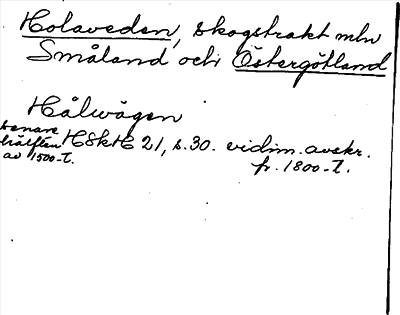 Holaveden, skogstrakt mln
Småland och Östergötland
Hålvägen
senare hälften av 1500-t.
HSkH 21, s. 30. vidim. avskr.
fr. 1800-t.